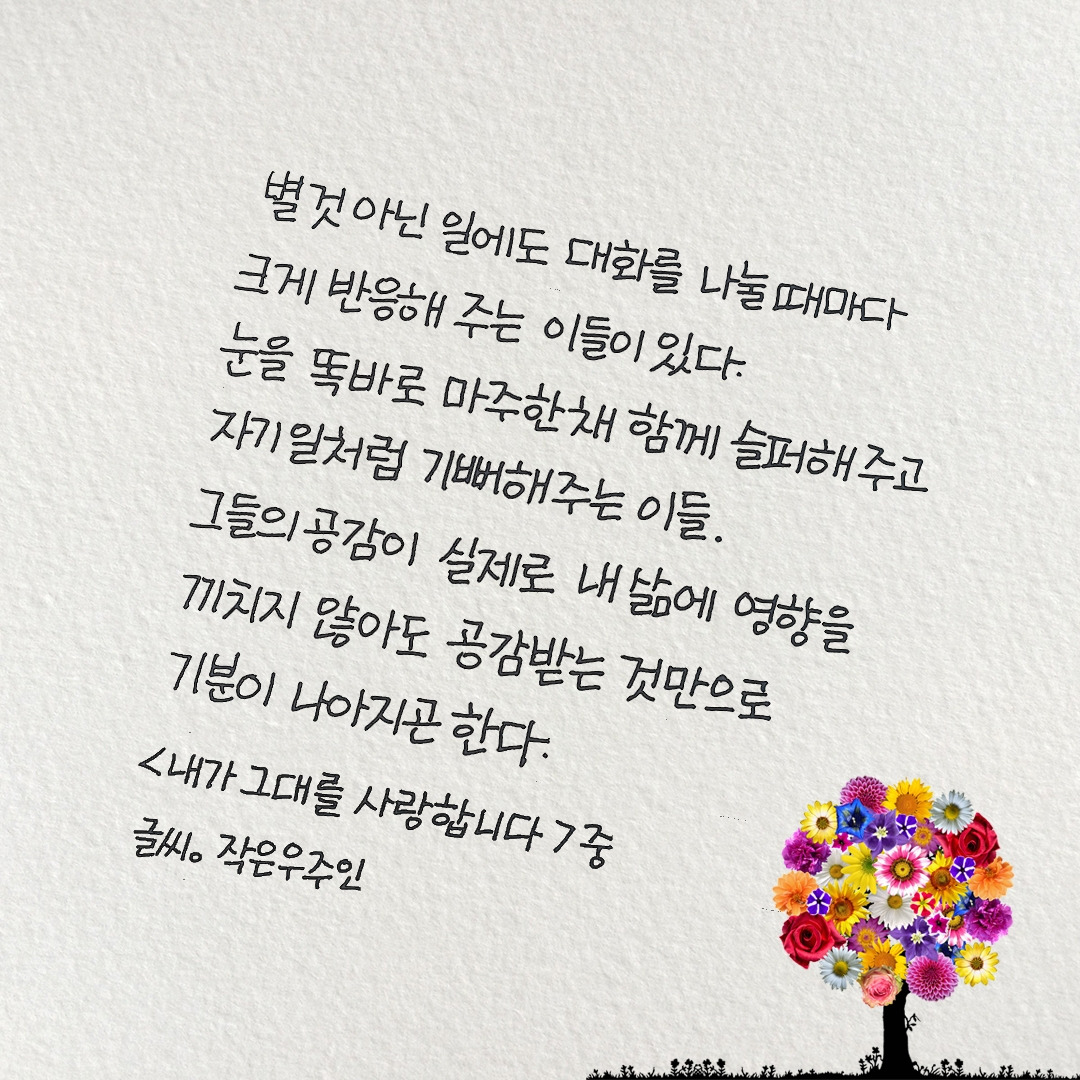 별것 아닌 일에도 대화를 나눌 때마다
크게 반응해 주는 이들이 있다.
눈을 똑바로 마주한채 함께 슬퍼해주고
자기일처럼 기뻐해주는 이들.
그들의 공감이 실제로 내 삶에 영향을
끼치지 않아도 공감받는 것만으로
기분이 나아지곤 한다.
<내가 그대를 사랑합니다> 중
글씨。 작은우주인